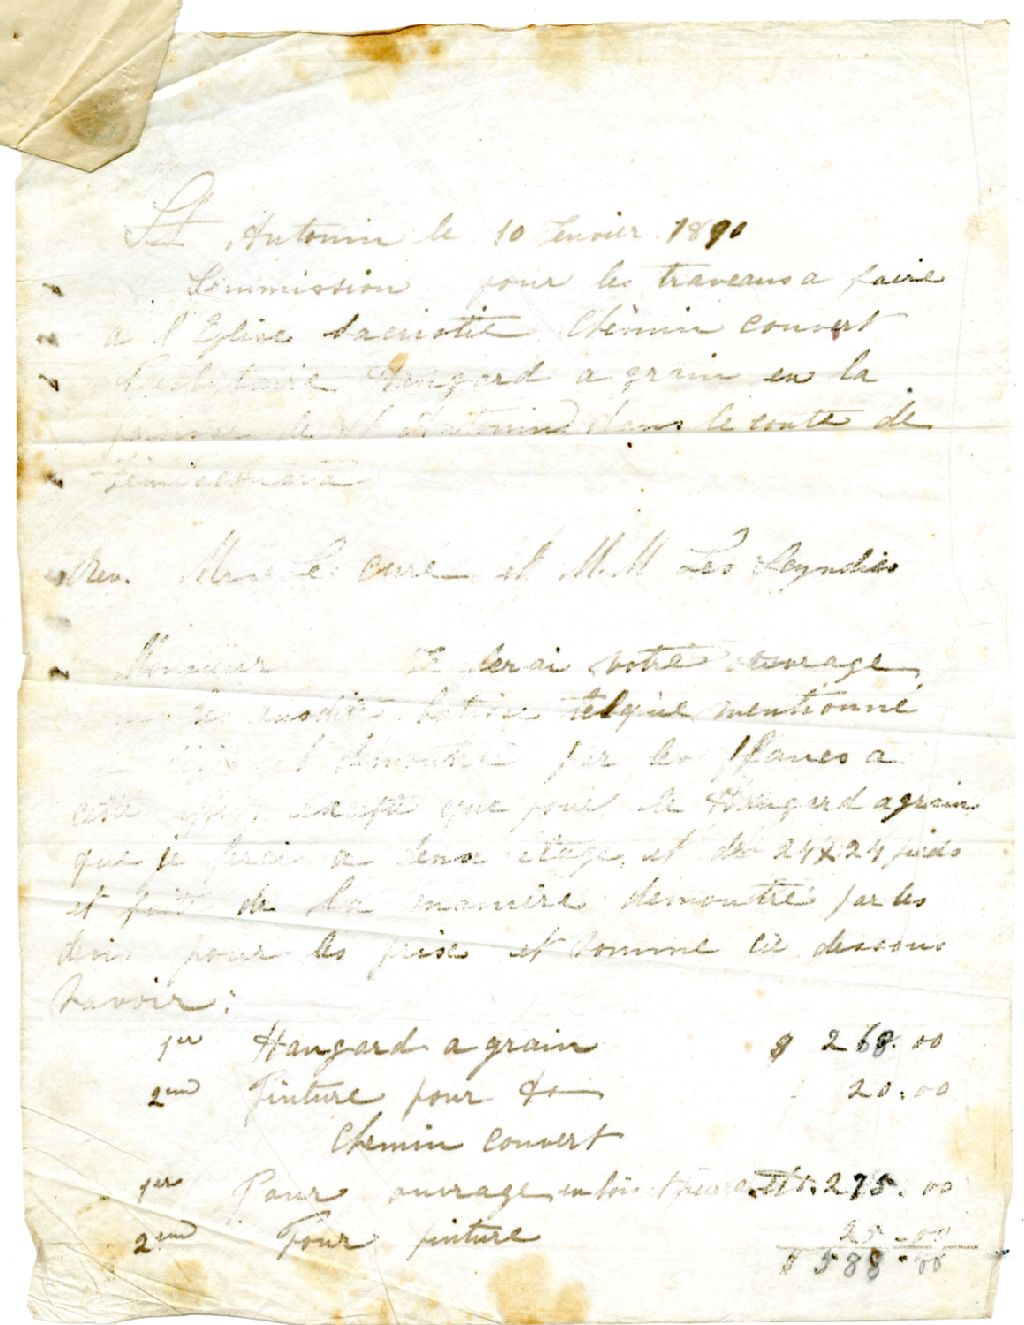 St Antonin le 10 Jenvier 1890
Soummission pour les traveaus a faire
a l'Eglise Sacristie Chemin couvert
Presbitaire Hangard a grain en la
paroisse de St Antonin dans le conte de
Témiscouata
Rev. Mes le cure et M.M Les Seyndics
Monsieur Je ferai votre ouvrage
telque mentionné
et demontre par les planes a
cette que pour le Hangard a grain
que je ferai a deux etage, et de 24x24 pieds
et faite de la maniere demontre par les
devis pour les prise et somme ci dessous
Savoir:
1er Hangard a grain $ 268.00
2em Pinture pour do 20.00
Chemin couvert
1er Pour ouvrage en bois 275.00
2em Pour pinture 25-00
$ 588-00